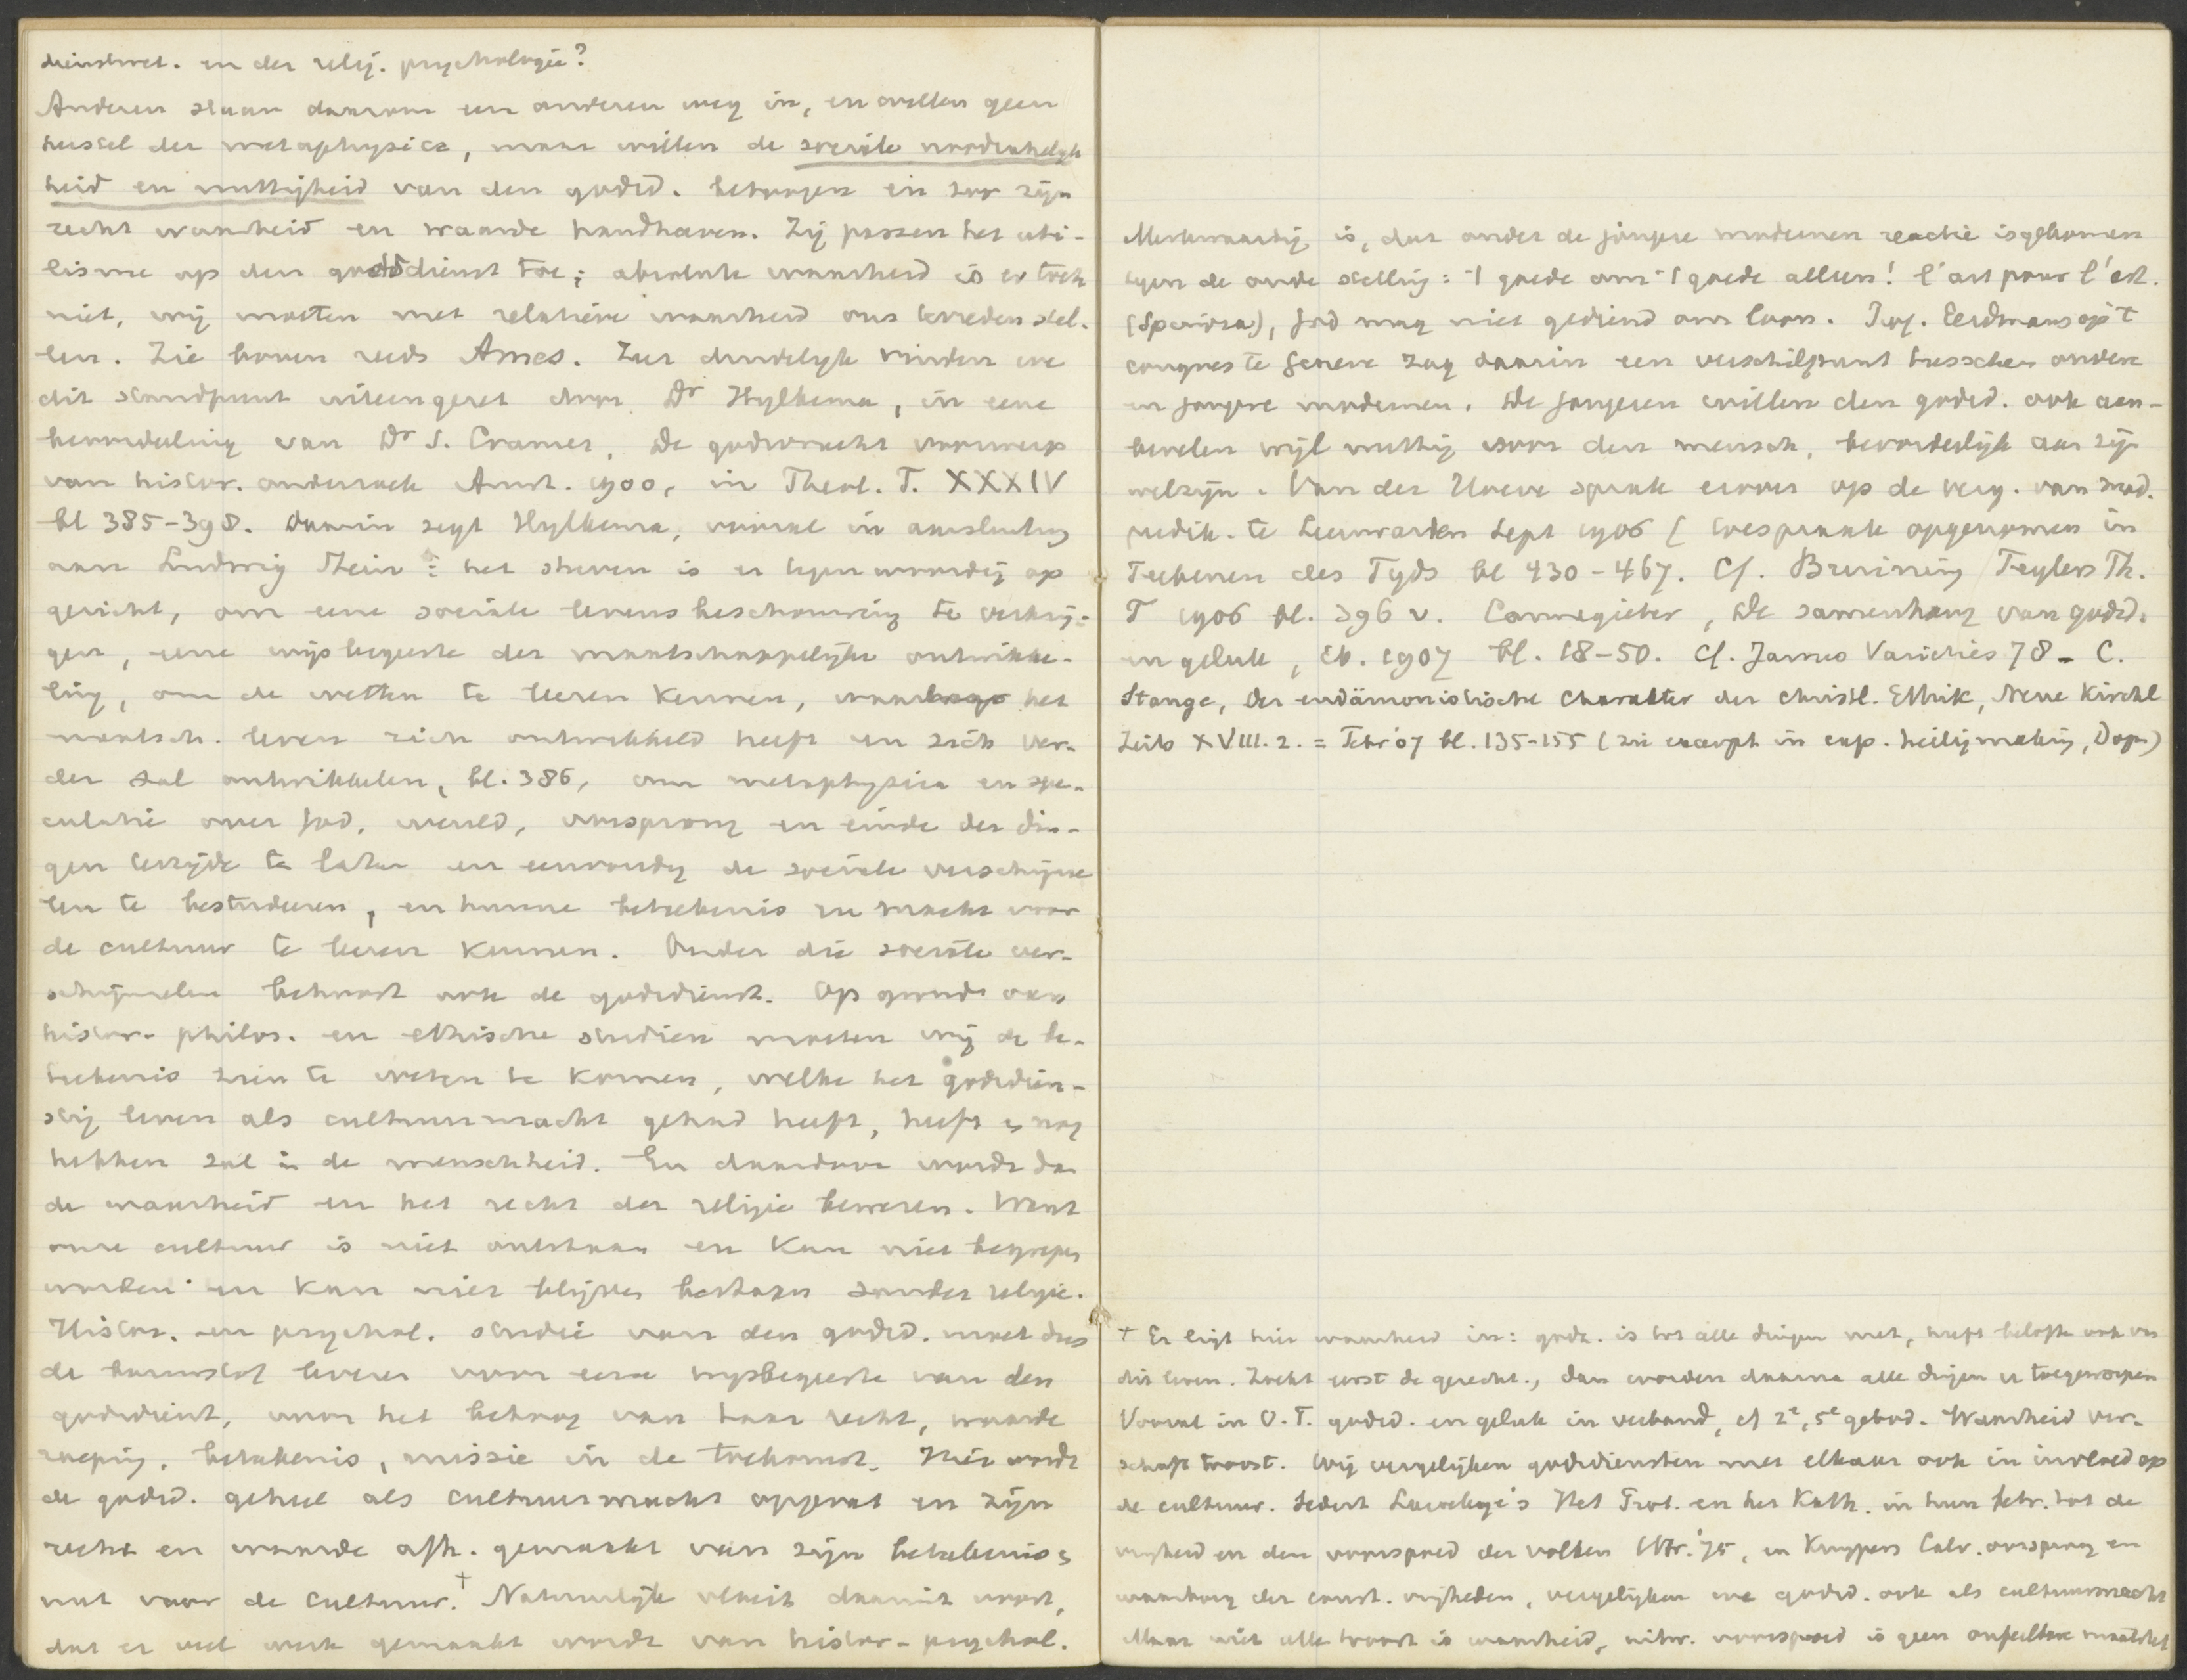 dienstwet. en der relig. psychologie?
Anderen slaan daarom een anderen weg in, en willen geen
herstel der metaphysica, maar willen de sociale noodzakelyk
heid en nuttigheid van den godsd. betoogen en zoo zijn
recht waarheid en waarde handhaven. Zij passen het uti-
lisme op den godsdienst toe; absolute waarheid is er toch
niet, wij moeten met relatieve waarheid ons tevreden stel-
len. Zie boven reeds Ames. Zeer duidelyk vinden we
dit standpunt uiteengezet door Dr Hylkema, in eene
beoordeeling van Dr S. Cramer, De godsvrucht voorwerp
van histor. onderzoek Amst. 1900, in Theol. T. XXXIV
bl 385-398. Daarin zegt Hylkema, vooral in aansluiting
aan Ludwig Stein: het streven is er tegenwoordig op
gericht, om eene sociale levensbeschouwing te verkrij-
gen, eene wijsbegeerte der maatschappelijke ontwikke-
ling, om de wetten te leeren kennen, waarlangs het
maatsch. leven zich ontwikkeld heeft en zich ver-
der zal ontwikkelen, bl. 386, om metaphysica en spe-
culatie over God, wereld, oorsprong en einde der din-
gen terzijde te laten en eenvoudig de sociale verschijnse
len te bestudeeren, en hunne beteekenis en macht voor
de cultuur te leeren kennen. Onder die sociale ver-
schijnselen behoort ook de godsdienst. Op grond van
histor. philos. en ethische studien moeten wij de be-
teekenis zien te weten te komen, welke het godsdien-
stig leven als cultuurmacht gehad heeft, heeft en nog
hebben zal in de menschheid. En daardoor wordt dan
de waarheid en het recht der religie bewezen. Want
onze cultuur is niet ontstaan en kan niet begrepen
worden en kan niet blijven bestaan zonder religie.
Histor. en psychol. studie van den godsd. moet dus
de bouwstof leveren voor eene wijsbegeerte van den
godsdienst, voor het betoog van haar recht, waarde
roeping, beteekenis, missie in de toekomst. Hier wordt
de godsd. geheel als cultuurmacht opgevat en zijn
recht en waarde afh. gemaakt van zijn beteekenis en
nut voor de cultuur.† Natuurlijk vloeit daaruit voort,
dat er veel werk gemaakt wordt van histor-psychol.
Merkwaardig is, dat onder de jongere modernen reactie is gekomen
tegen de oude stelling: 't goede om 't goede alleen! l'art pour l'art.
(Spinoza), God mag niet gediend om loon. Prof. Eerdmans op 't
congres te Geneve zag daarin een verschilpunt tusschen oudere
en jongere modernen. De jongeren willen den godsd. ook aan-
bevelen wijl nuttig voor den mensch, bevorderlijk aan zijn
welzijn. Van der Hoeve sprak erover op de verg. van mod.
predik. te Leeuwarden Sept 1906 (toespraak opgenomen in
Teekenen des Tyds bl 430-467. Cf. Bruining Teylers Th.
T 1906 bl. 396 v. Cannegieter, De samenhang van godsd.
en geluk, ib. 1907 bl. 18-50. Cf. James Varieties 78 - C.
Stange, Der eudämonistische Charakter der christl. Ethik, Neue Kirchl
Zeits XVIII. 2. = Febr '07 bl. 135-155 (zie excerpt in exp. heiligmaking, Dogm)
† Er ligt hier waarheid in: godz. is tot alle dingen nut, heeft belofte ook van
dit leven. Zoekt eerst de gerecht., dan worden daarna alle dingen u toegeworpen
Vooral in O.T. godsd. en geluk in verband, cf 2e, 5e gebod. Waarheid ver-
schaft troost. Wij vergelijken godsdiensten met elkaar ook in invloed op
de cultuur. Sedert Laveleye's Het Prot. en het Kath. in hun betr. tot de
vrijheid en den voorspoed der volken Utr. '75, en Kuypers Calv. oorsprong en
waarborg der const. vrijheden, vergelijken we godsd. ook als cultuurmacht
Maar niet alle troost is waarheid, uitw. voorspoed is geen onfeilbare maatstaf